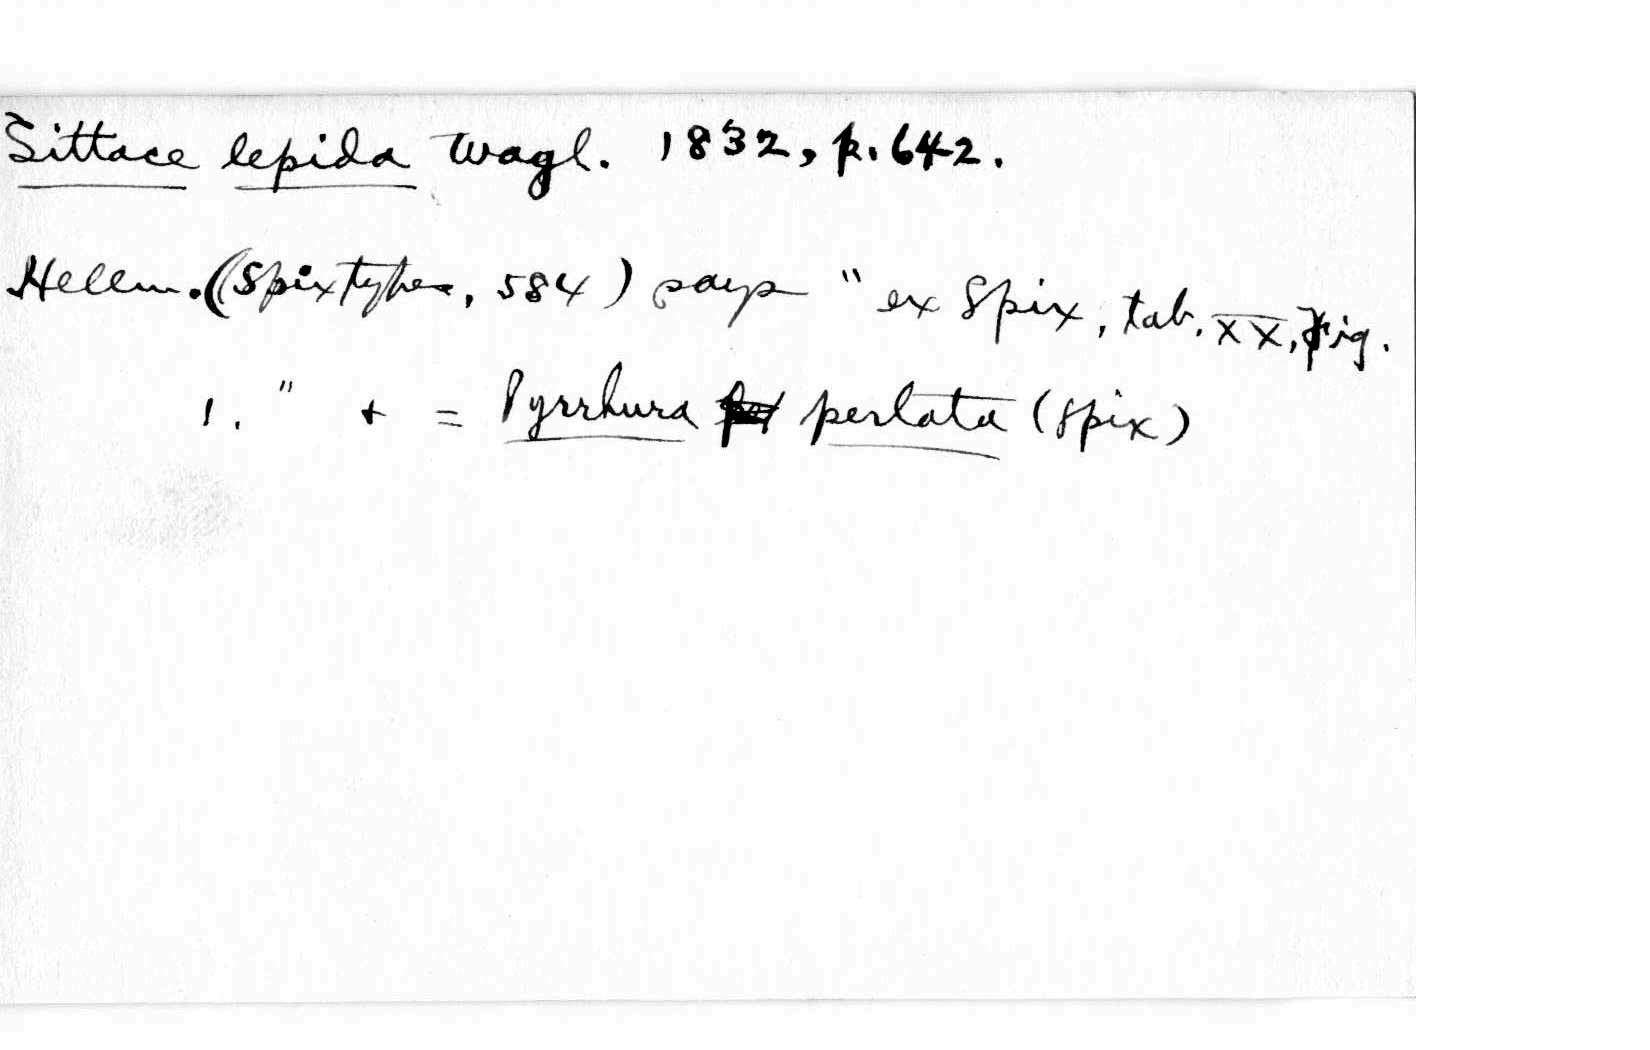 Sittace lepida Wagl. 1832, p. 642.
Hellm. (Spix types, 584) says "ex Spix, tab. XX, Fig.
1." + = Pyrrhura perlata (Spix)